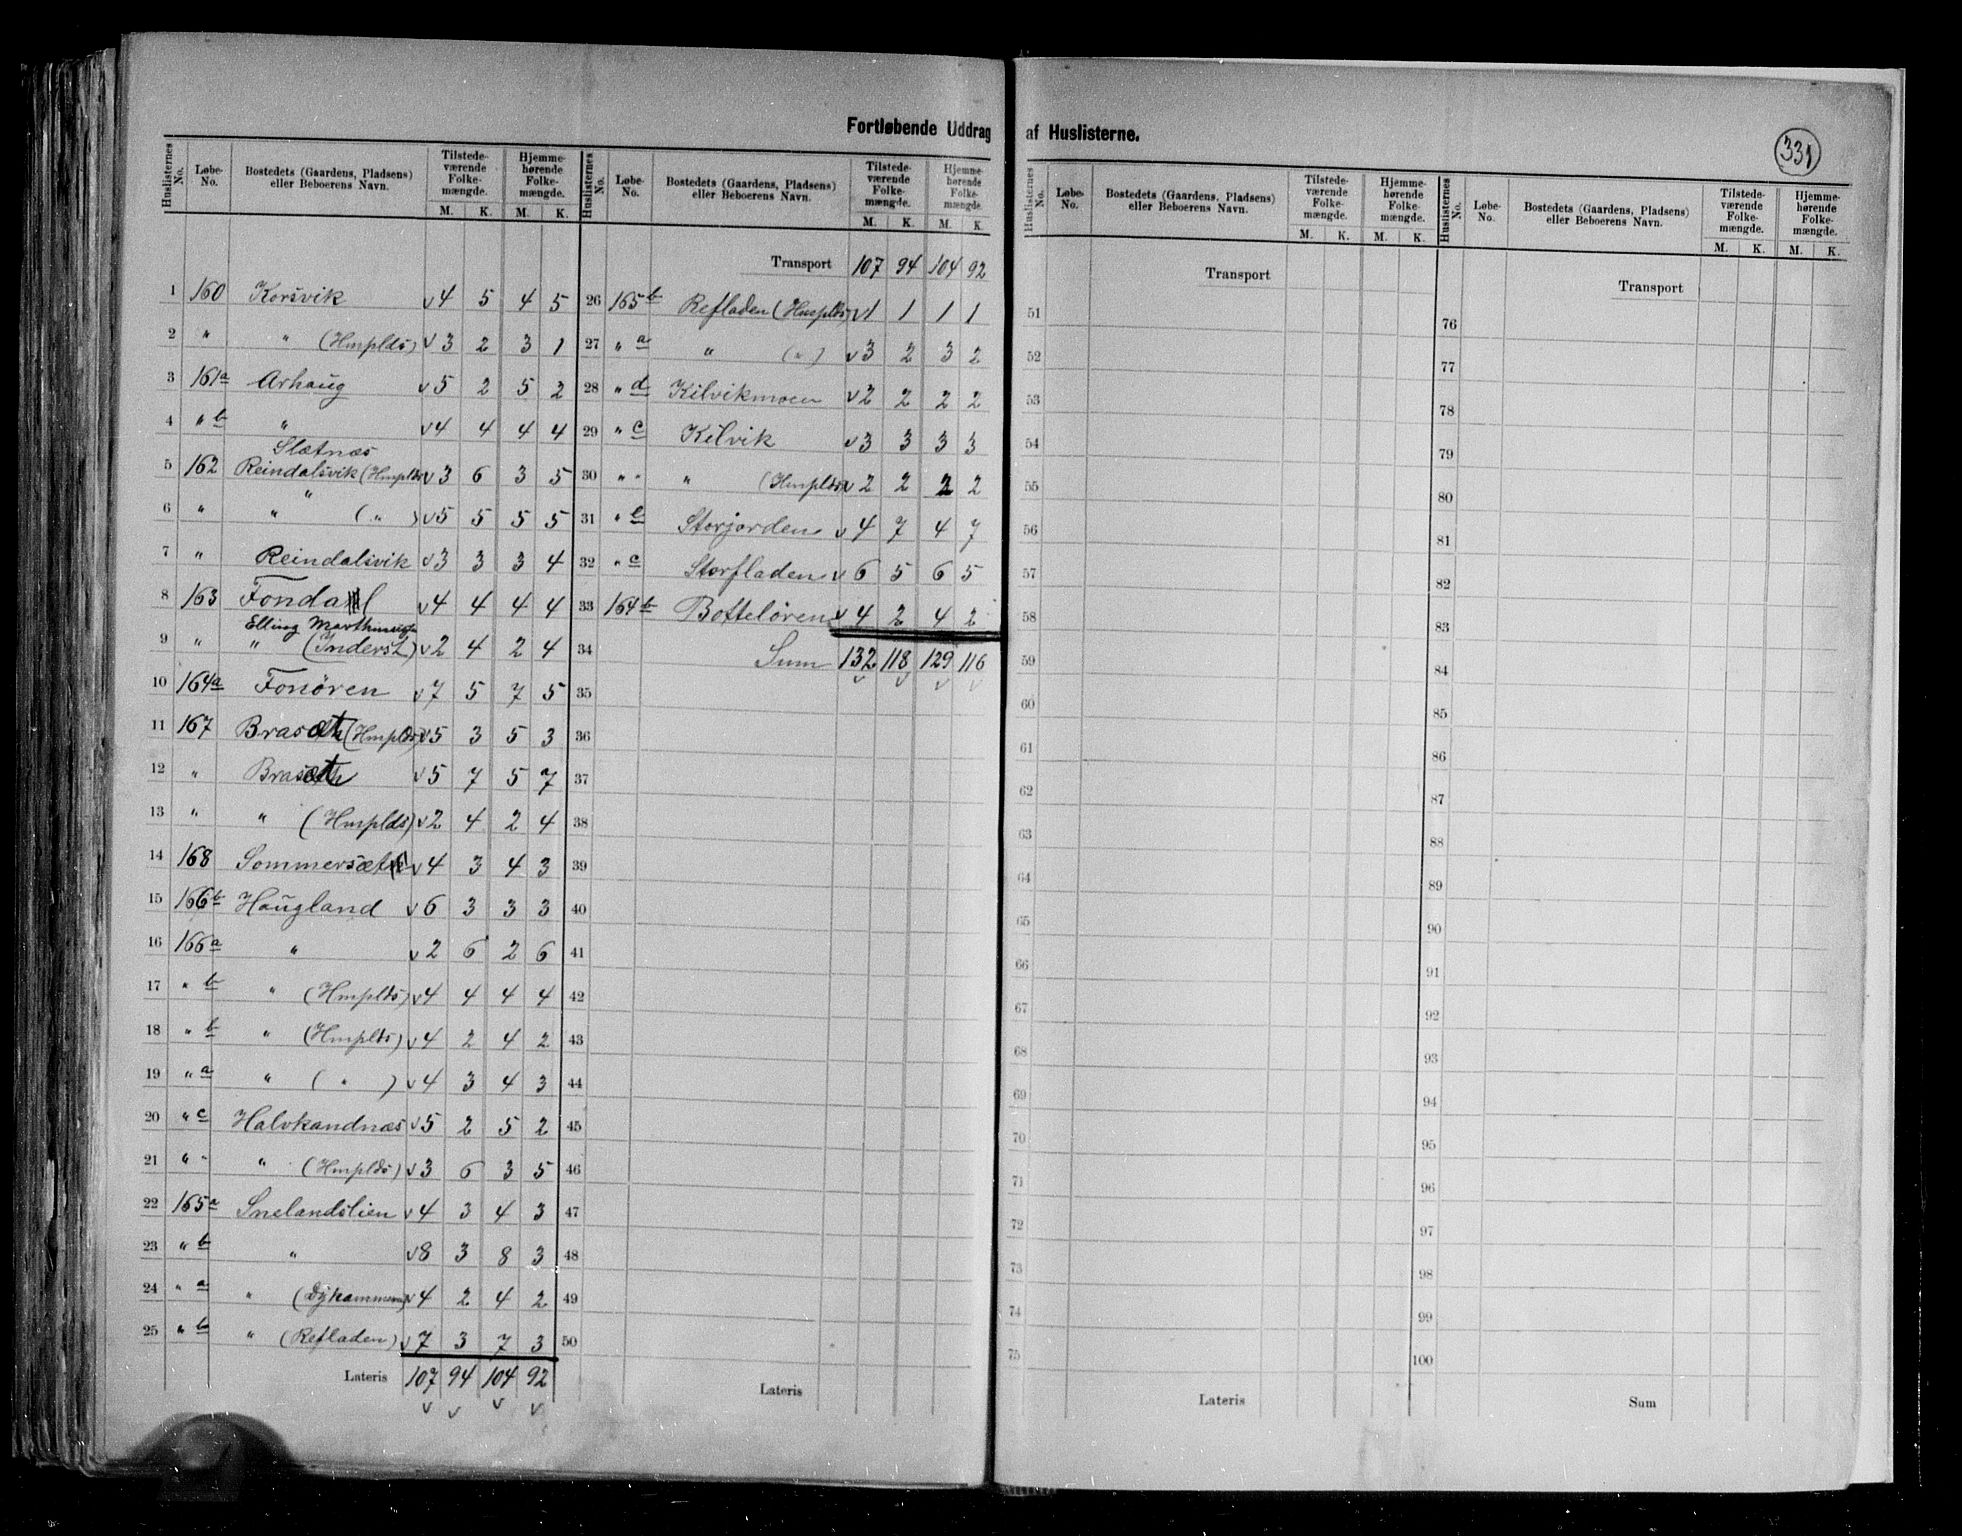 Fortløbende Uddrag af Huslisterne.
331
Huslisternes No. Løbe-No. Bostedets (Gaardens, Pladsens) eller Beboerens Navn. Tilstedeværende Folkemængde. M. K. Hjemmehørende Folkemængde. M. K.
1 160 Korsvik v4 5 4 5
2 " " (Hmplds) v3 2 3 1
3 161a Arhaug v5 2 5 2
4 " b " v4 4 4 4
Slætnæs
5 162 Reindalsvik (Hmplds) v3 6 3 5
"
6 " " ( " ) v5 5 5 5
7 " Reindalsvik v3 3 3 4
8 163 Fondal v4 4 4 4
Elling
9 " " (Inderst) v2 4 2 4
10 164a Fonøren v7 5 7 5
11 167 Brasæt (Hmplds) v5 3 5 3
12 " Brasæt v5 7 5 7
13 " " (Hmplds) v2 4 2 4
14 168 Sommersæt v4 3 4 3
15 166b Haugland v6 3 3 3
16 166a " v2 6 2 6
17 " b " (Hmplds) v4 4 4 4
18 " b " (Hmplds) v4 2 4 2
19 " a " ( " ) v4 3 4 3
20 " c Halvkandnæs v5 2 5 2
21 " - " (Hmplds) v3 6 3 5
22 165a Snelandslien v4 3 4 3
23 " b " v8 3 8 3
24 " a " v4 2 4 2
25 " b " (Refladen) v7 3 7 3
Lateris 107 94 104 92
v v v v
Huslisternes No. Løbe-No. Bostedets (Gaardens, Pladsens) eller Beboerens Navn. Tilstedeværende Folkemængde. M. K. Hjemmehørende Folkemængde. M. K.
Transport 107 94 104 92
26 165b Refladen (Husplds) v1 1 1 1
27 " a " ( " ) v3 2 3 2
28 " d Kilvikmoen v2 2 2 2
29 " c Kilvik v3 3 3 3
30 " " " (Hmplds) v2 2 2 2
31 " e Storjorden v4 7 4 7
32 " c Storfladen v6 5 6 5
33 164b Botteløren v4 2 4 2
34 Sum 132 118 129 116
v v v v
35
36
37
38
39
40
41
42
43
44
45
46
47
48
49
50
Lateris
Huslisternes No. Løbe-No. Bostedets (Gaardens, Pladsens) eller Beboerens Navn. Tilstedeværende Folkemængde. M. K. Hjemmehørende Folkemængde. M. K.
Transport
51
52
53
54
55
56
57
58
59
60
61
62
63
64
65
66
67
68
69
70
71
72
73
74
75
Lateris
Huslisternes No. Løbe-No. Bostedets (Gaardens, Pladsens) eller Beboerens Navn. Tilstedeværende Folkemængde. M. K. Hjemmehørende Folkemængde. M. K.
Transport
76
77
78
79
80
81
82
83
84
85
86
87
88
89
90
91
92
93
94
95
96
97
98
99
100
Sum